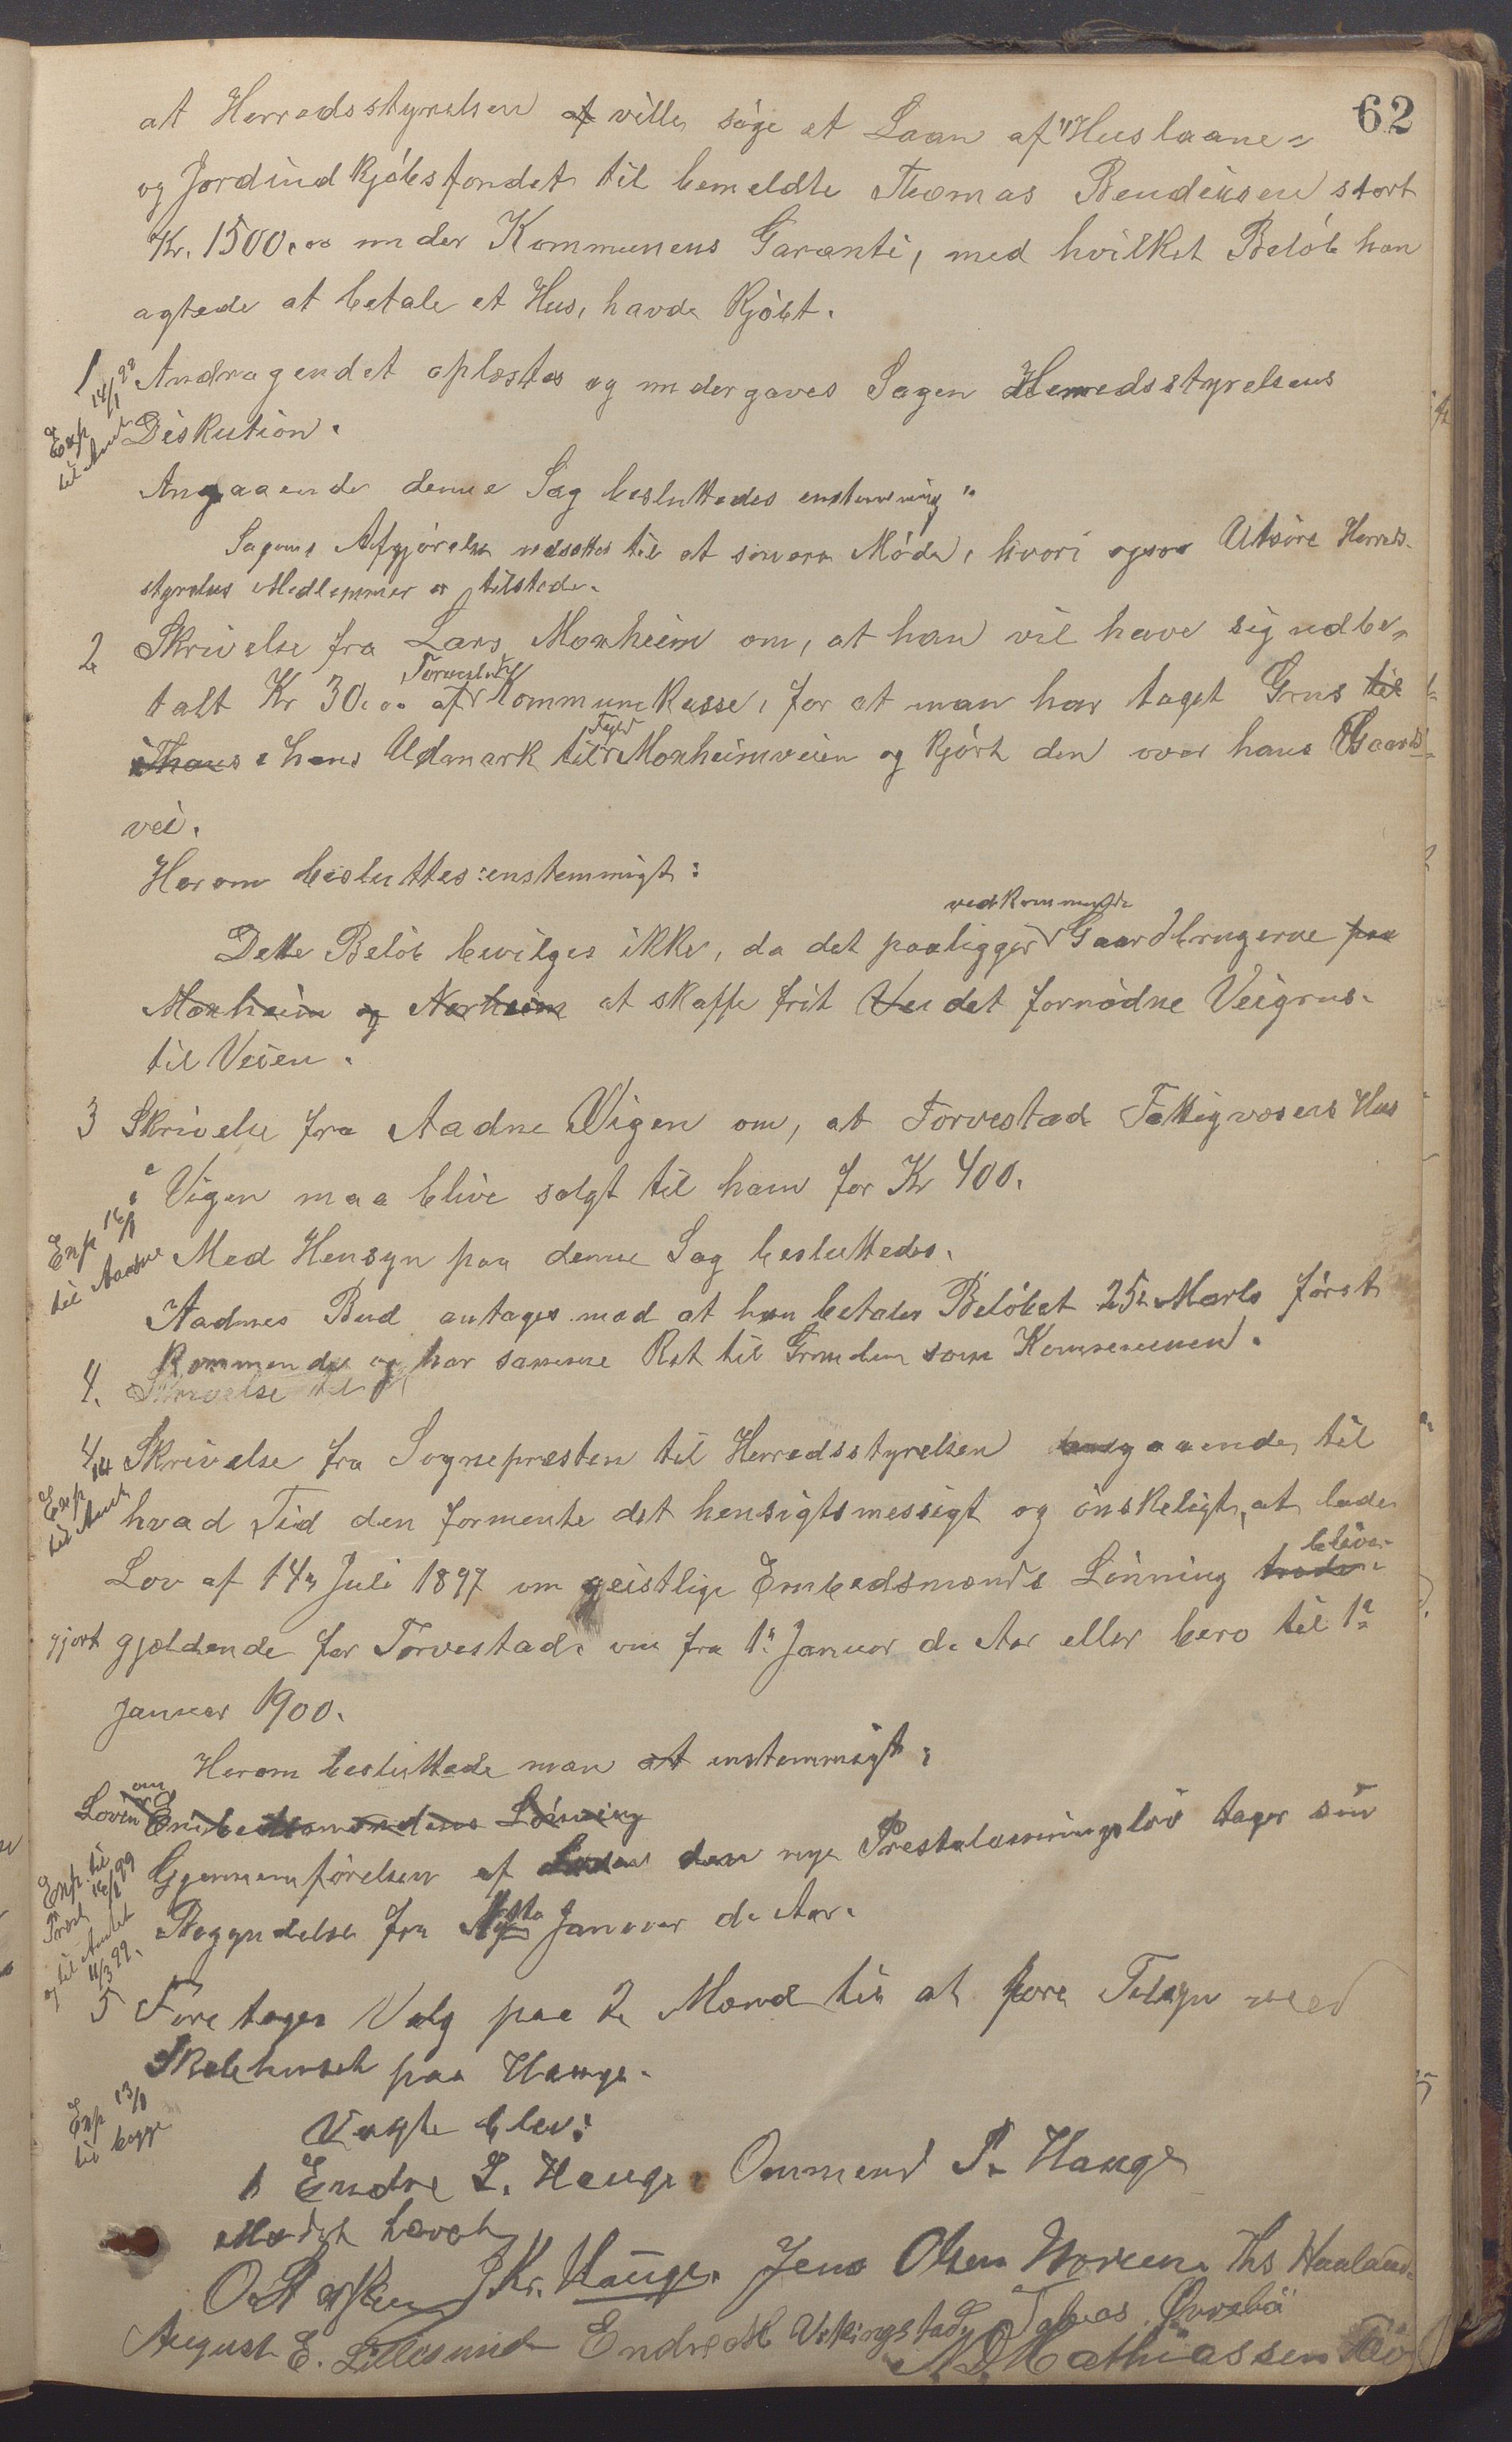 62
at Herredsstyrelsen at ville söge et Laan af "Huslaane-
og Jordindkjöbsfondet til bemeldte Thomas Bendiksen stort
Kr. 1500.00 under Kommunens Garanti, med hvilket Belöb han
agtede at betale et Hus, havde kjöbt.
1 Andragendet oplæstes og undergaves Sagen Herredsstyrelsens
Exp 14/1 99
til Amtet
Diskution.
Angaaende denne Sag besluttedes enstemmig"
Sagens Afgjörelse udsættes til et senere Möde, hvori ogsaa Utsire Herreds-
styrelses Medlemmer er tilstede.
2 Skrivelse fra Lars Moxheim om, at han vil have sig udbe-
Torvestad
talt Kr 30.00 af Kommunekasse, for at man har taget Grus til
Fyld
i Thans i hans Udmark til Moxheimveien og kjört den over hans Gaards-
vei.
Herom besluttes enstemmigt:
vedkommende
Dette Belöb bevilges ikke, da det paaligger Gaardbrugerne paa
Moxheim og Norheim at skaffe frit Vei det fornödne Veigrus
til Veien.
3 Skrivelse fra Aadne Vigen om, at Torvestad Fattigvæsens Hus
i Vigen maa blive solgt til ham for Kr 400.
Exp 16/1
til Aadne
Med Hensyn paa denne Sag besluttedes.
Aadnes Bud antages mod at han betaler Belöbet 25de Marts först
kommende og har samme Ret til Grunden som Kommunen.
4. Skrivelse til
4 Skrivelse fra Sognepræsten til Herredsstyrelsen angaaende, til
Exp 14
til Amtet
hvad Tid den formente det hensigtsmessigt og önskeligt, at lade
blive
Lov af 14de Juli 1897 om geistlige Embedsmænds Lönning træde
gjort gjældende for Torvestad. om fra 1ste Januar d. Aar eller bero til 1ste
Januar 1900.
Herom besluttede man at enstemmigt:
om
Loven Embedsmændens Lönning
Gjennemförelsen af den nye Prestelönningslov tager sin
Exp. til
Prost 16/1 99
og til Amtet
11/3 99.
Begyndelse fra Januar d. Aar.
5 Foretages Valg paa 2 Mænd til at före Tilsyn med
Skolehuset paa Hauge.
Exp 13/1
til begge
Valgte blev:
1 Endre L. Hauge. Ommund P. Hauge
Mödet hævet
J Kr. Hauge. Jens Olsen Ths Haaland
August E. Lillesund Endre M Vikingstad Tobias Qvalvaag
A. D. Mathiassen